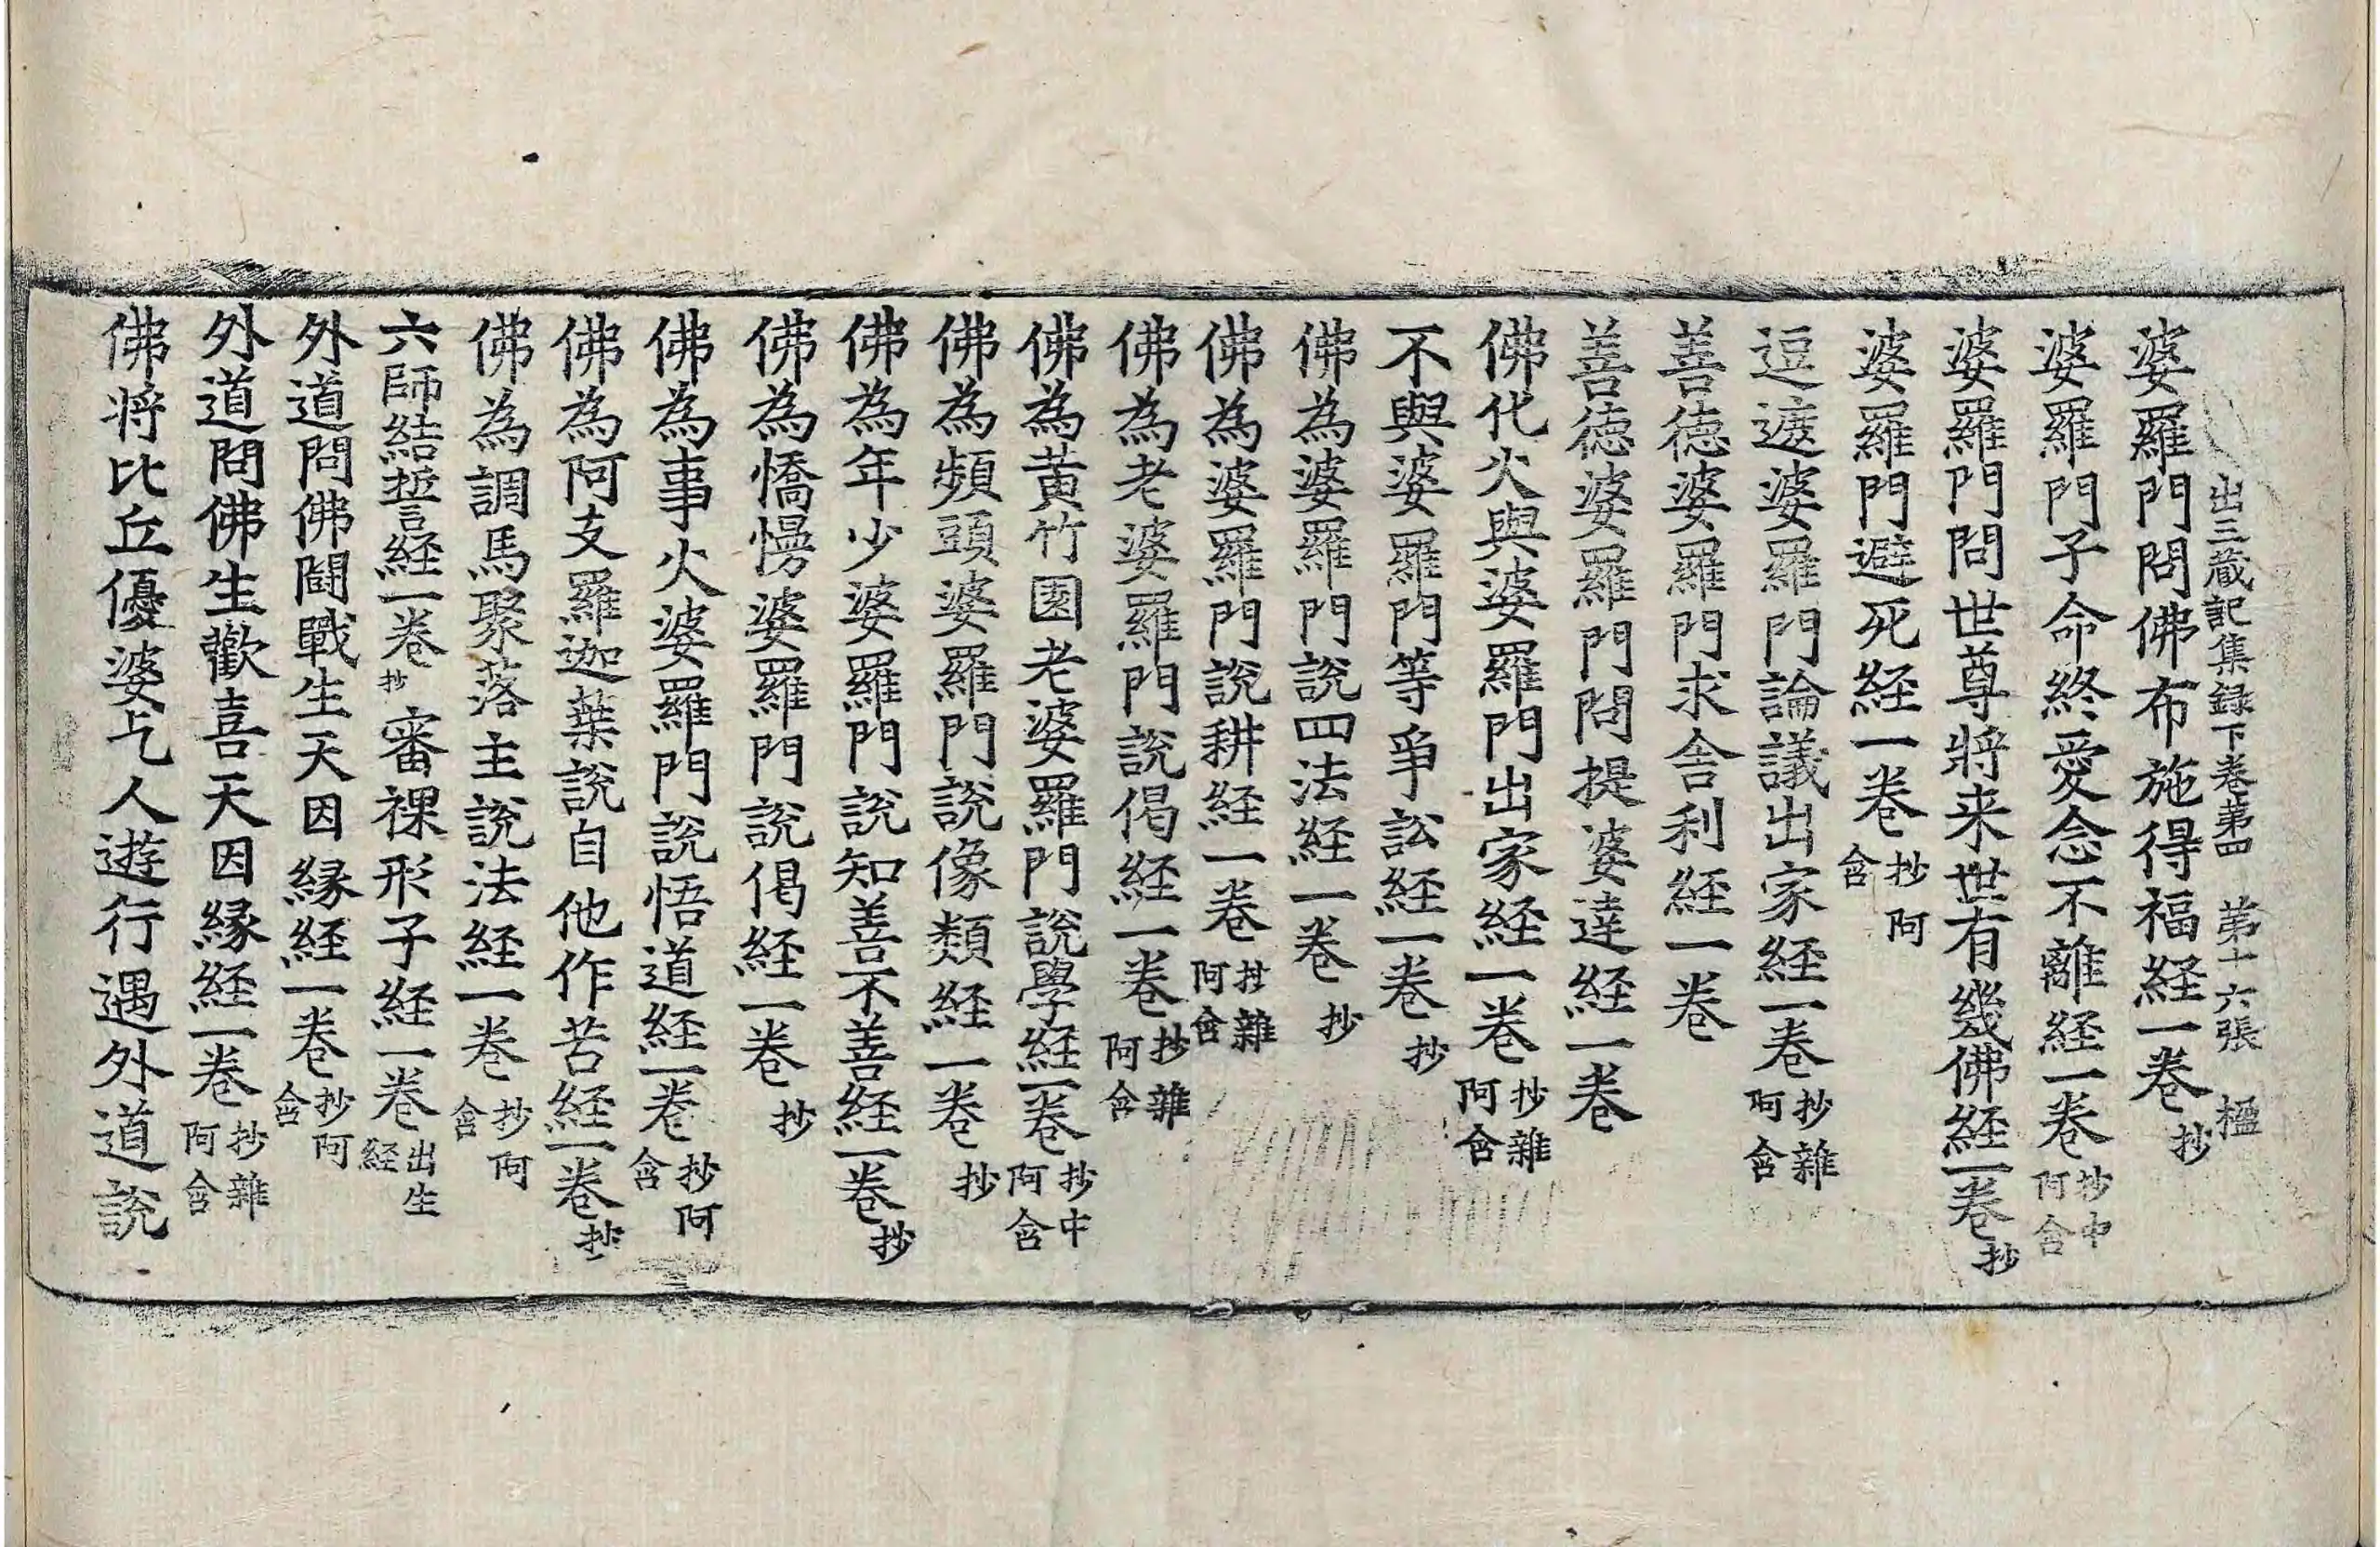 出三蔵記集録下卷第四　第十六張　楹
婆羅門問佛布施得福経一卷抄
婆羅門子命終愛念不離経一卷抄中阿含
婆羅門問世尊將来世有幾佛経一卷抄
婆羅門避死経一卷抄阿含
逗遮婆羅門論議出家経一卷抄雜阿含
善徳婆羅門求舍利経一卷
善徳婆羅門問提婆達経一卷
佛代火與婆羅門出家経一卷抄雜阿含
不與婆羅門等爭訟経一卷抄
佛為婆羅門說四法経一卷抄
佛為婆羅門說耕経一卷抄雜阿含
佛為老婆羅門說偈経一卷抄雜阿含
佛為黃竹園老婆羅門說學経一卷抄中阿含
佛為頻頭婆羅門說像類経一卷抄
佛為年少婆羅門說知善不善経一卷抄
佛為憍慢婆羅門說偈経一卷抄
佛為事火婆羅門說悟道経一卷抄阿含
佛為阿支羅迦葉說自他作苦経一卷抄
佛為調馬聚落主說法経一卷抄阿含
六師結誓経一卷抄　審祼形子経一卷出生経
外道問佛鬪戰生天因縁経一卷抄阿含
外道問佛生歡喜天因縁経一卷抄雜阿含
佛将比丘優婆乞人遊行遇外道說